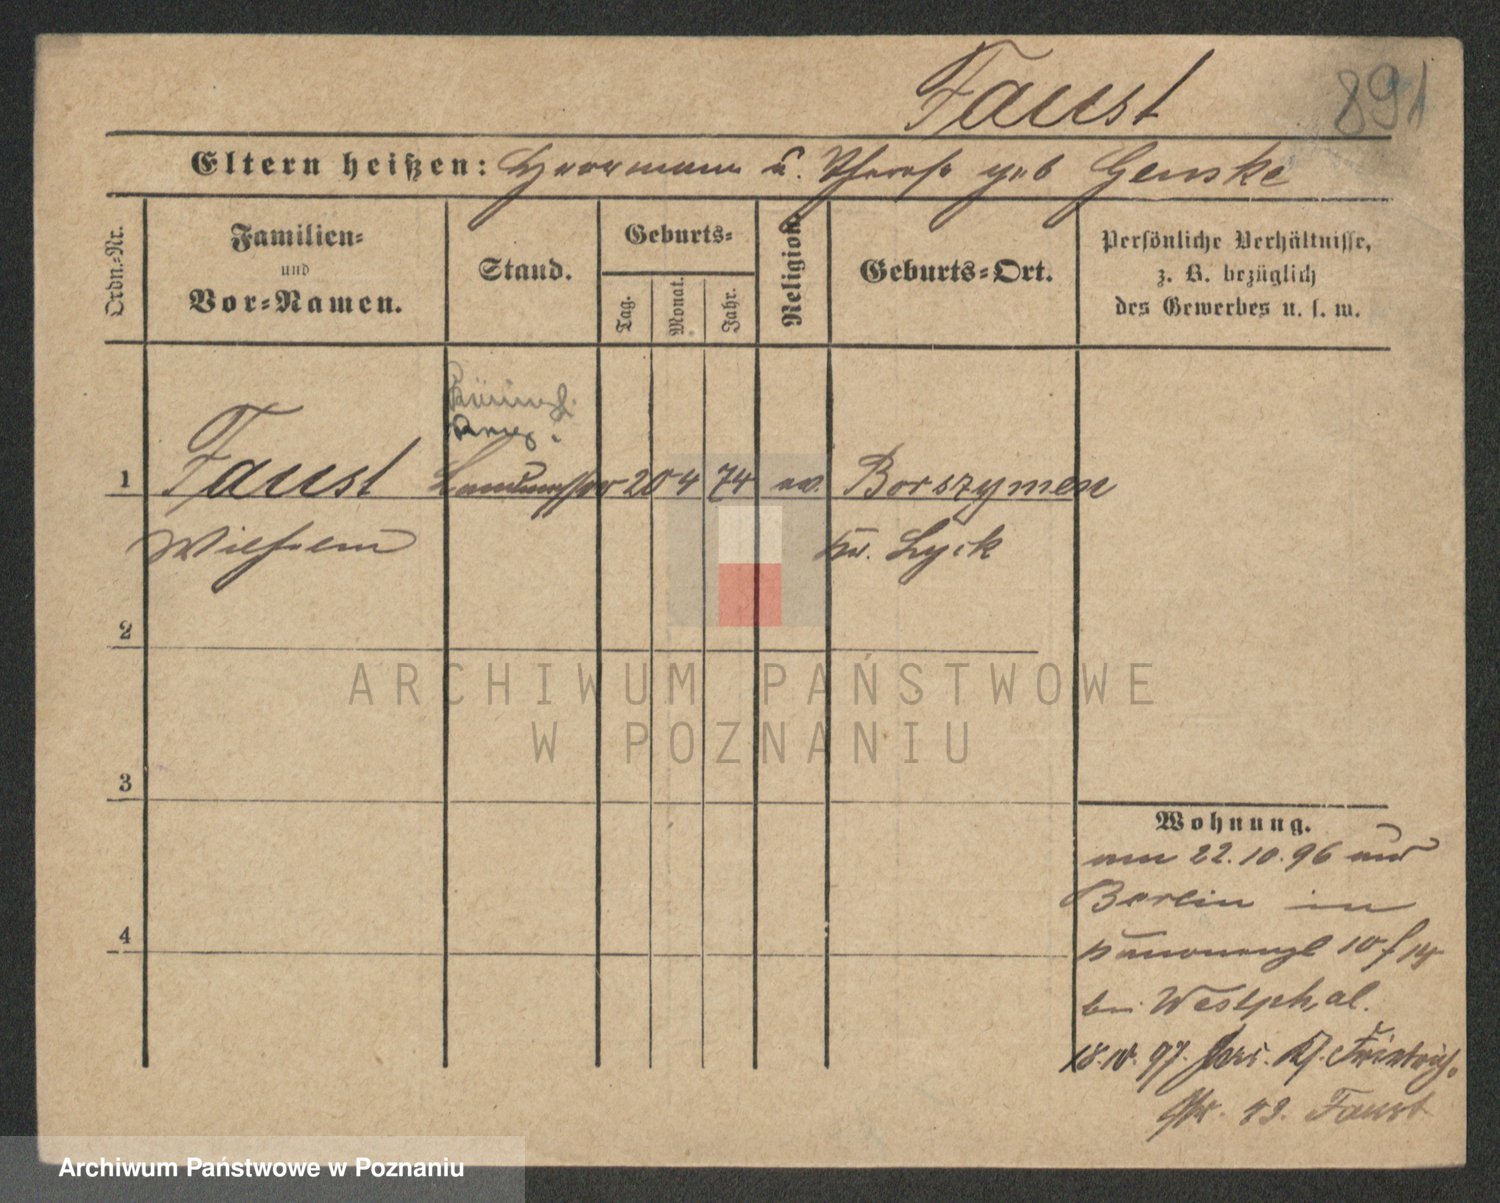 Faust
891
Eltern heißen: Herrmann u. Therese geb Genske
Ordn.-Nr.
Familien-
und
Vor-Namen.
Stand.
Geburts-
Tag.
Monat.
Jahr.
Religion.
Geburts-Ort.
Persönliche Verhältnisse,
z. B. bezüglich
des Gewerbes u. s. w.
1 Faust 20 4 74 ev. Borszymen
Wilhelm Kr. Lyck
2
3
4
Wohnung.
am 22.10.96 aus
Berlin in
10/14
bei Westphal.
18.10.97. Friedrich.
Str. 43. Faust
ARCHIWUM PAŃSTWOWE
W POZNANIU
Archiwum Państwowe w Poznaniu